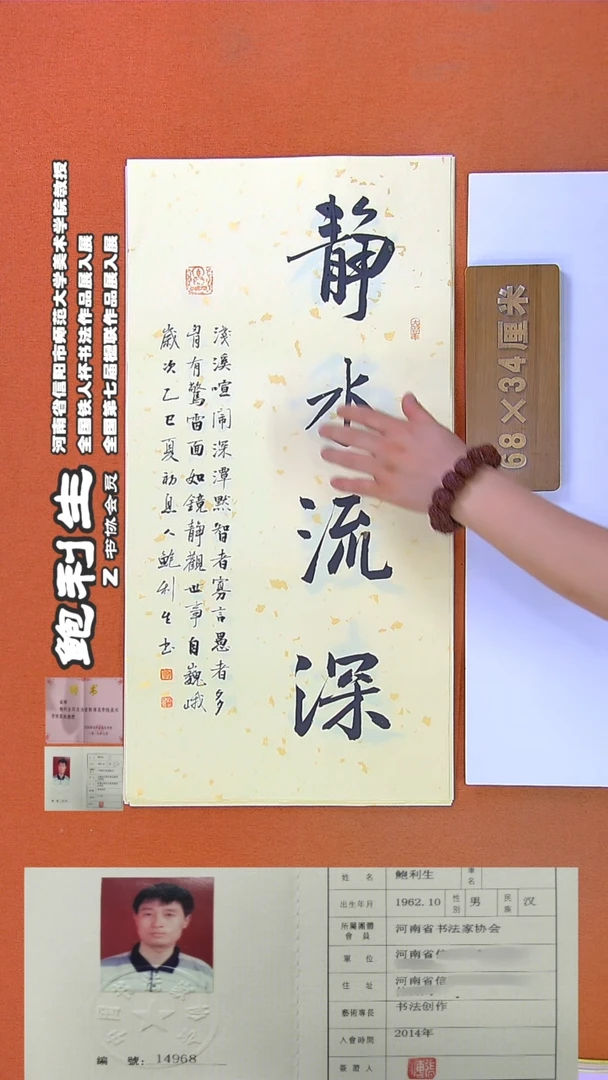 静水流深
淺溪喧闹深潭默智者寡言愚者多
胷有驚雷面如鏡静觀世事自巍峨
歲次乙巳夏初息人鮑利生书
68×34厘米
河南省信阳市师范大学美术学院教授
全国铁人杯书法作品展入展
全国第七届楹联作品展入展
鲍利生
Z书协会员
聘书
姓名 鲍利生
出生年月 1962.10 性别 男 民族 汉
所屬團體會員 河南省书法家协会
單位 河南省信
住址 河南省信
藝術專長 书法创作
入會時間 2014年
簽證人
編號：14968